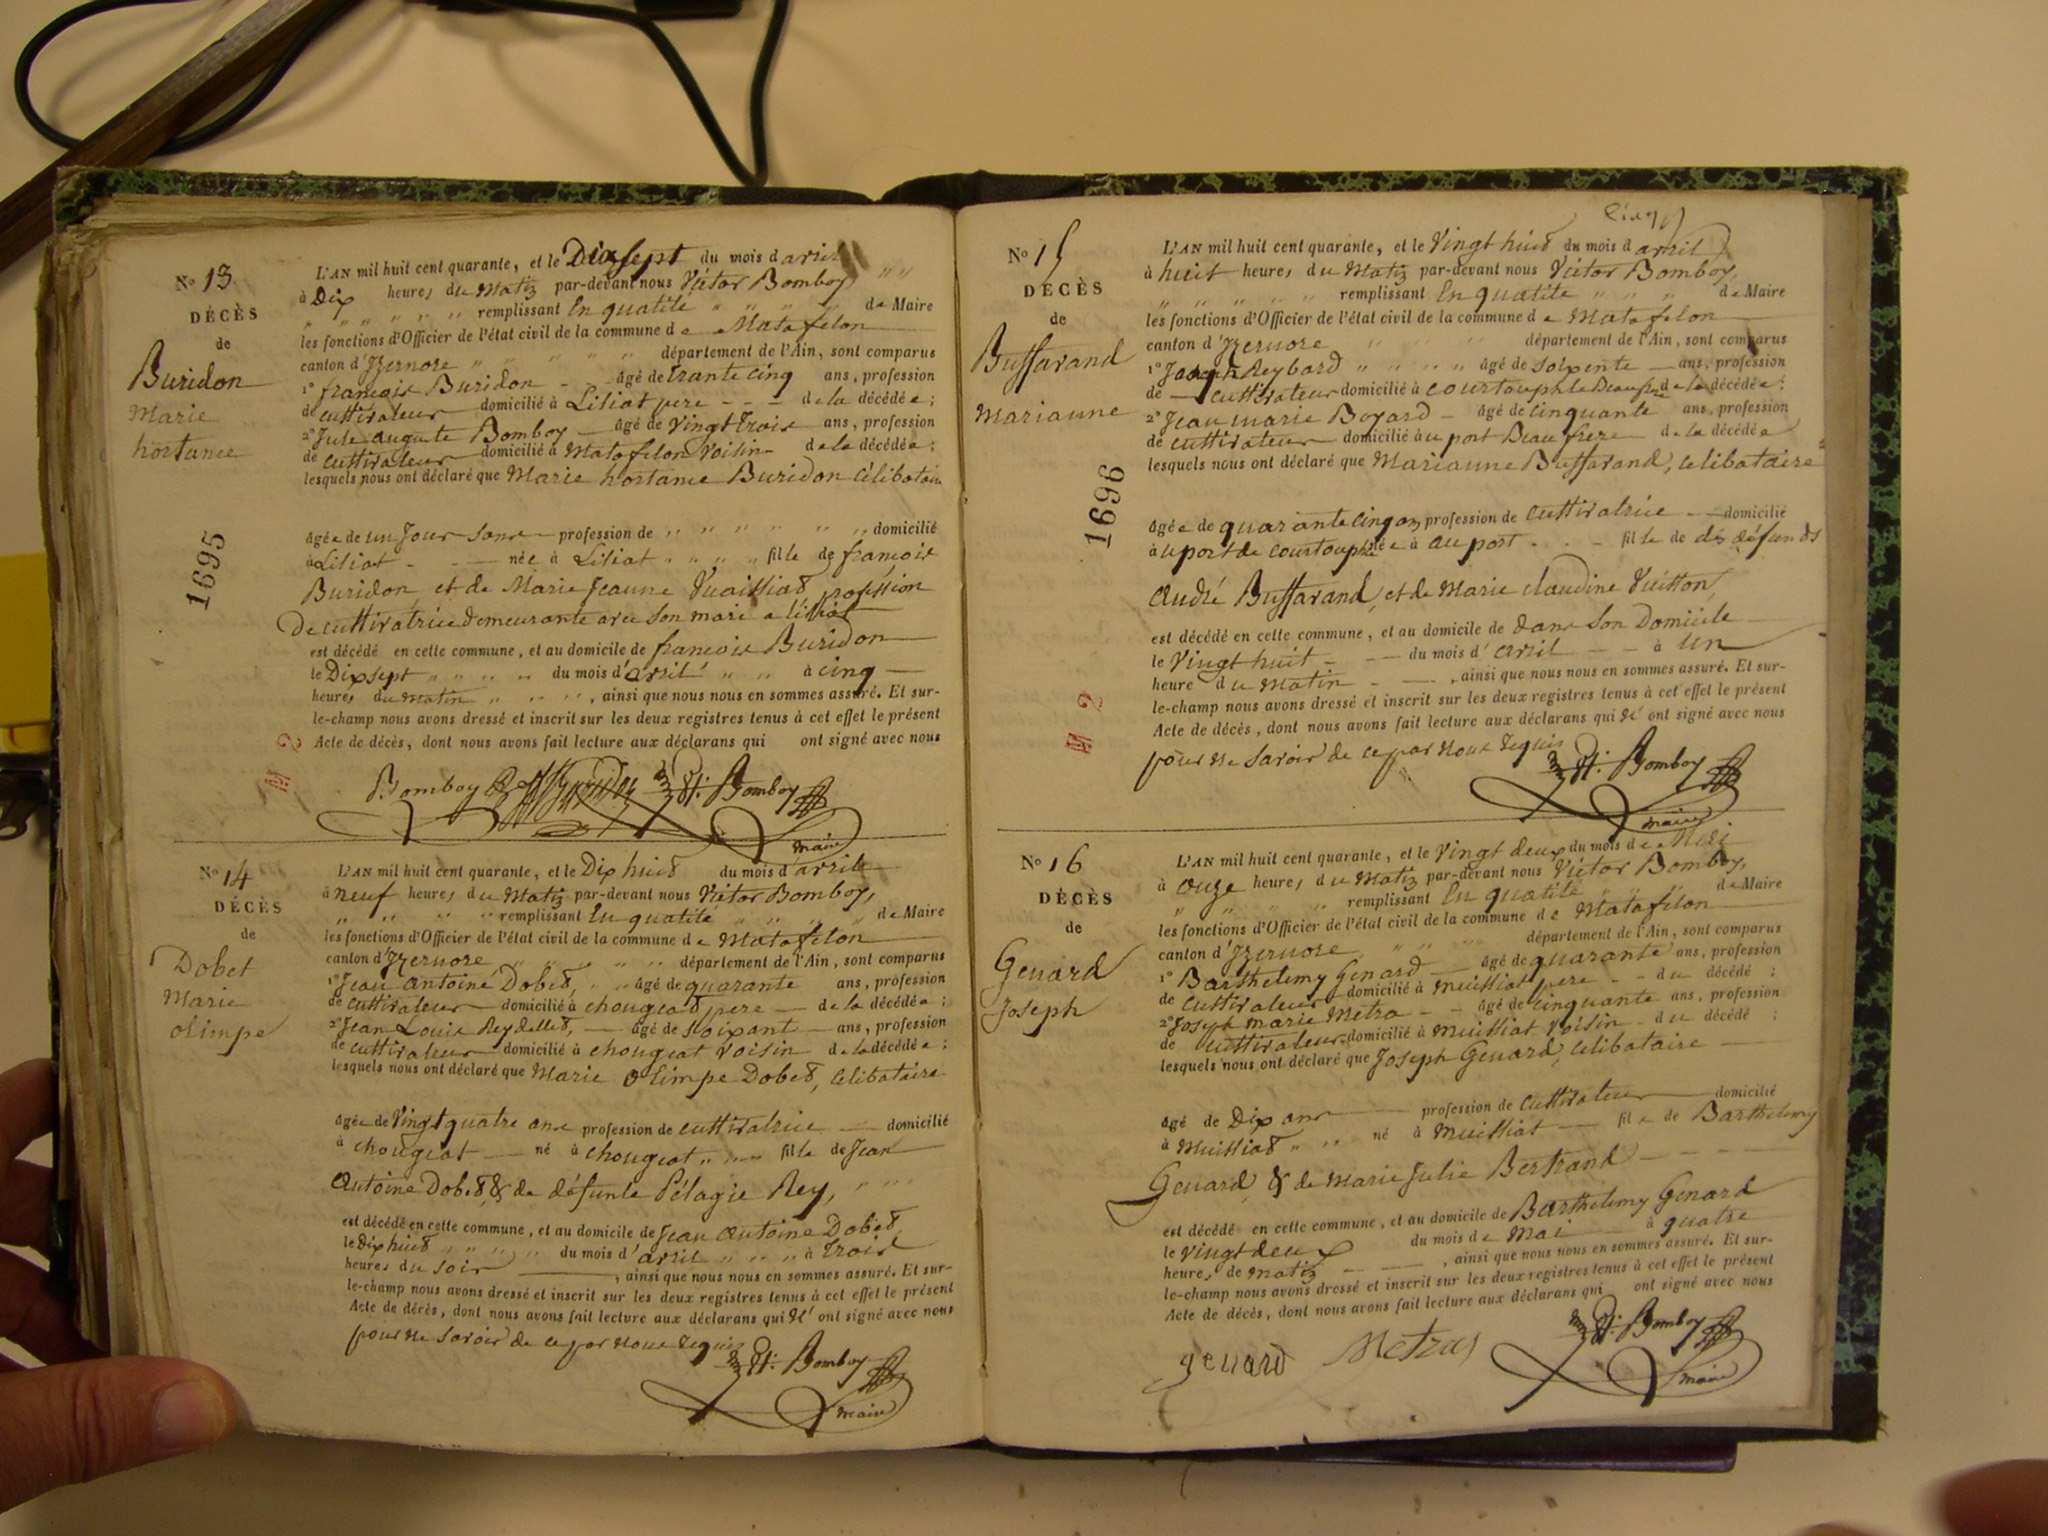 No 13
DÉCÈS
de
Buridon
Marie
hortance
1695
L'AN mil huit cent quarante, et le Dixsept du mois d'avril
à Dix heures du Matin par-devant nous Victor Bomboy
remplissant En qualité de Maire
les fonctions d'Officier de l'état civil de la commune de Matafelon
canton d'Izernore département de l'Ain, sont comparus
1° françois Buridon âgé de trante cinq ans, profession
de cultivateur domicilié à Liliat pere de la décédée ;
2° Jule auguste Bomboy âgé de vingt trois ans, profession
de cultivateur domicilié à Matafelon voisin de la décédée ;
lesquels nous ont déclaré que Marie hortance Buridon célibataire
âgée de un Jour sans profession de domicilié
à Liliat née à Liliat fille de françois
Buridon et de Marie Jeanne profession
De cultivatrice demeurante avec son mari a liliat
est décédé en cette commune, et au domicile de francois Buridon
le Dixsept du mois d'avril à cinq
heures du Matin , ainsi que nous nous en sommes assuré. Et sur-
le-champ nous avons dressé et inscrit sur les deux registres tenus à cet effet le présent
Acte de décès, dont nous avons fait lecture aux déclarans qui ont signé avec nous
Bomboy Bomboy
maire
No 14
DÉCÈS
de
Dobet
Marie
olimpe
L'AN mil huit cent quarante, et le Dix huit du mois d'avrile
à neuf heures du Matin par-devant nous Victor Bomboy,
remplissant En qualité de Maire
les fonctions d'Officier de l'état civil de la commune de Matafelon
canton d'Izernore département de l'Ain, sont comparus
1° Jean Antoine Dobet, âgé de quarante ans, profession
de cultivateur domicilié à chougeat pere de la décédée ;
2° Jean Louis Reydellet, âgé de soixant ans, profession
de cultivateur domicilié à chougeat voisin de la décédée ;
lesquels nous ont déclaré que Marie olimpe Dobet, celibataire
âgée de Vingt quatre ans profession de cultivatrice domicilié
à chougeat né à chougeat fille de Jean
Antoine Dobet & de défunte Pélagie Rey,
est décédé en cette commune, et au domicile de Jean Antoine Dobet,
le Dix huit du mois d'avril à trois
heures du soir , ainsi que nous nous en sommes assuré. Et sur-
le-champ nous avons dressé et inscrit sur les deux registres tenus à cet effet le présent
Acte de décès, dont nous avons fait lecture aux déclarans qui n' ont signé avec nous
pour ne savoir de ce par nous requis
Bomboy
maire
No 15
DÉCÈS
de
Buffarand
Marianne
1696
L'AN mil huit cent quarante, et le Vingt huit du mois d avril
à huit heures du Matin par-devant nous Victor Bomboy,
remplissant En qualité de Maire
les fonctions d'Officier de l'état civil de la commune de Matafelon
canton d'Izernore département de l'Ain, sont comparus
1° Reybard âgé de soixente ans, profession
de cultivateur domicilié à courtouphle Beaufrere de la décédée ;
2° Jean marie Boyard âgé de cinquante ans, profession
de cultivateur domicilié à u port Beau frere de la décédée
lesquels nous ont déclaré que Marianne Buffarand, celibataire
âgée de quarante cinq ans profession de cultivatrice domicilié
à u port de courtouphle née à au port fille de dés défunds
André Buffarand, et de Marie claudine Vuitton,
est décédé en cette commune, et au domicile de dans son Domicile
le Vingt huit du mois d'avril à un
heure du Matin , ainsi que nous nous en sommes assuré. Et sur-
le-champ nous avons dressé et inscrit sur les deux registres tenus à cet effet le présent
Acte de décès, dont nous avons fait lecture aux déclarans qui n' ont signé avec nous
pour ne savoir de ce par nous requis
Bomboy
maire
No 16
DÉCÈS
de
Genard
Joseph
L'AN mil huit cent quarante, et le Vingt deux du mois de Mai
à onze heures du Matin par-devant nous Victor Bomboy,
remplissant En qualité de Maire
les fonctions d'Officier de l'état civil de la commune de Matafelon
canton d'Izernore département de l'Ain, sont comparus
1° Barthelemy Genard âgé de quarante ans, profession
de cultivateur domicilié à muissiat pere du décédé ;
2° Joseph marie Metra âgé de cinquante ans, profession
de cultivateur domicilié à muissiat voisin du décédé ;
lesquels nous ont déclaré que Joseph Genard, celibataire
âgé de Dix ans profession de cultivateur domicilié
à Muissiat né à Muissiat fils de Barthelemy
Genard & de Marie Julie Bertrand
est décédé en cette commune, et au domicile de Barthelemy Genard
le vingt deux du mois de Mai à quatre
heures de matin , ainsi que nous nous en sommes assuré. Et sur-
le-champ nous avons dressé et inscrit sur les deux registres tenus à cet effet le présent
Acte de décès, dont nous avons fait lecture aux déclarans qui ont signé avec nous
genard Metras Bomboy
maire